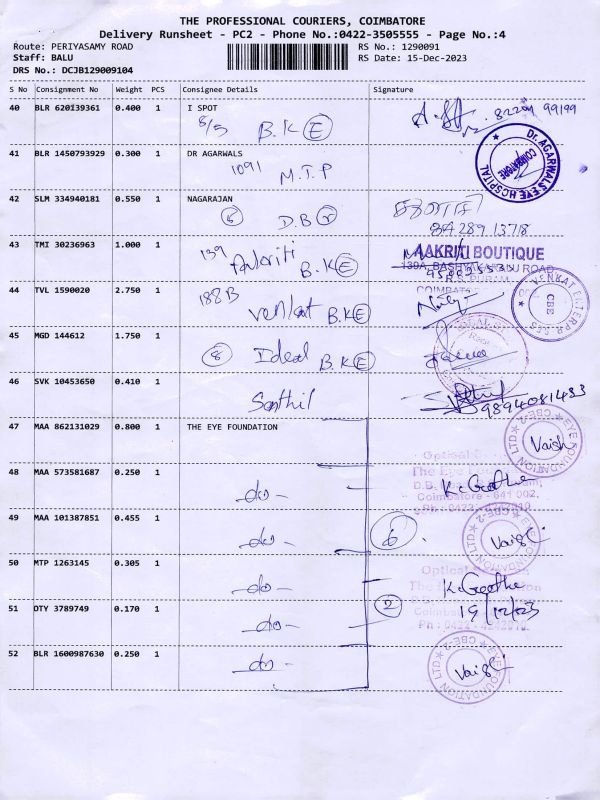 THE PROFESSIONAL COURIERS, COIMBATORE
Delivery Runsheet - PC2 - Phone No.:0422-3505555 - Page No.:4
Route: PERIYASAMY ROAD
Staff: BALU
DRS No.: DCJB129009104
RS No.: 1290091
RS Date: 15-Dec-2023
S No Consignment No Weight PCS Consignee Details Signature
40 BLR 620139361 0.400 1 I SPOT
8/5 B.K(E) 82204 99199
41 BLR 1450793929 0.300 1 DR AGARWALS
1091 M.T.P
Dr. AGARWALS EYE HOSPITAL COIMBATORE
42 SLM 334940181 0.550 1 NAGARAJAN
(6) D.B(r)
84289 1378
43 TMI 30236963 1.000 1
139 Aakriti B.K(E)
AAKRITI BOUTIQUE
139A, BASHYAKARLU ROAD
R.S. PURAM
COIMBATORE
44 TVL 1590020 2.750 1
188B Venkat B.K(E)
VENKAT ENTERPRISES CBE
45 MGD 144612 1.750 1
(8) Ideal B.K(E)
46 SVK 10453650 0.410 1
Senthil
9894081483
47 MAA 862131029 0.800 1 THE EYE FOUNDATION
EYE FOUNDATION LTD CBE-2
Vaish
48 MAA 573581687 0.250 1
-do-
The Eye Foundation
D.B.
Coimbatore - 641 002.
K. Geetha
49 MAA 101387851 0.455 1
-do-
(6)
EYE FOUNDATION LTD CBE-2
50 MTP 1263145 0.305 1
-do-
K. Geetha
51 OTY 3789749 0.170 1
-do-
(2)
19/12/23
52 BLR 1600987630 0.250 1
-do-
EYE FOUNDATION LTD CBE-2